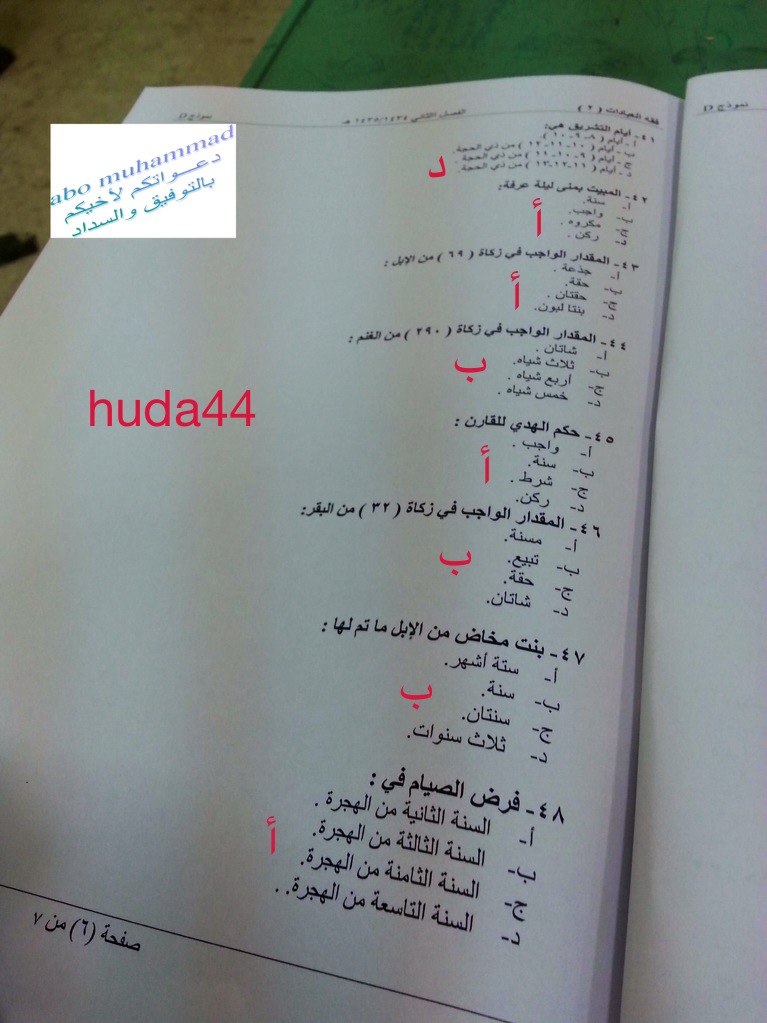 نموذج D
فقه العبادات ( ٢ )
الفصل الثاني ١٤٣٤/١٤٣٥ هـ
نموذج D
abo muhammad
دعـــواتكم لأخيكم
بالتوفيق والسداد
٤١- أيام التشريق هي:
أ - أيام ( ٨-٩-١٠ ).
ب - أيام ( ١٠-١١-١٢ ) من ذي الحجة.
ج - أيام ( ٩-١٠-١١ ) من ذي الحجة.
د - أيام ( ١١-١٢-١٣ ) من ذي الحجة.
د
٤٢- المبيت بمنى ليلة عرفة:
أ- سنة.
ب- واجب.
ج- مكروه .
د- ركن .
أ
٤٣- المقدار الواجب في زكاة ( ٦٩ ) من الإبل :
أ- جذعة .
ب- حقة.
ج- حقتان .
د- بنتا لبون.
أ
٤٤- المقدار الواجب في زكاة ( ٢٩٠ ) من الغنم :
أ- شاتان .
ب- ثلاث شياه.
ج- أربع شياه .
د- خمس شياه .
ب
huda44
٤٥- حكم الهدي للقارن :
أ- واجب .
ب- سنة.
ج- شرط .
د- ركن.
أ
٤٦- المقدار الواجب في زكاة ( ٣٢ ) من البقر:
أ- مسنة.
ب- تبيع.
ج- حقة.
د- شاتان.
ب
٤٧- بنت مخاض من الإبل ما تم لها :
أ- ستة أشهر.
ب- سنة.
ج- سنتان.
د- ثلاث سنوات.
ب
٤٨- فرض الصيام في :
أ- السنة الثانية من الهجرة .
ب- السنة الثالثة من الهجرة.
ج- السنة الثامنة من الهجرة.
د- السنة التاسعة من الهجرة. .
أ
صفحة (٦) من ٧